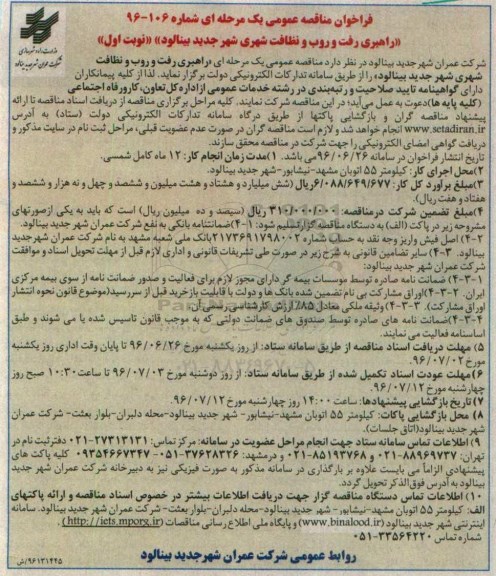 فراخوان مناقصه عمومی یک مرحله ای شماره ۱۰۶-۹۶
«راهبری رفت و روب و نظافت شهری شهر جدید بینالود» «نوبت اول»
شرکت عمران شهر جدید بینالود در نظر دارد مناقصه عمومی یک مرحله ای «راهبری رفت و روب و نظافت
شهری شهر جدید بینالود» را از طریق سامانه تدارکات الکترونیکی دولت برگزار نماید. لذا از کلیه پیمانکاران
دارای گواهینامه تایید صلاحیت و رتبه‌بندی در رشته خدمات عمومی از اداره کل تعاون، کار ورفاه اجتماعی
(کلیه پایه ها) دعوت به عمل می‌آید، در این مناقصه شرکت نمایند. کلیه مراحل برگزاری مناقصه از دریافت اسناد مناقصه تا ارائه
پیشنهاد مناقصه گران و بازگشایی پاکتها از طریق درگاه سامانه تدارکات الکترونیکی دولت (ستاد) به آدرس
www.setadiran.ir انجام خواهد شد و لازم است مناقصه گران در صورت عدم عضویت قبلی، مراحل ثبت نام در سایت مذکور و
دریافت گواهی امضای الکترونیکی را جهت شرکت در مناقصه محقق سازند.
تاریخ انتشار فراخوان در سامانه ۹۶/۰۶/۲۶ می باشد. ۱)مدت زمان انجام کار: ۱۲ ماه کامل شمسی.
۲)محل اجرای کار: کیلومتر ۵۵ اتوبان مشهد-نیشابور-شهر جدید بینالود.
۳)مبلغ برآورد کل کار: ۶/۰۸۸/۶۴۹/۶۷۷ ریال (شش میلیارد و هشتاد و هشت میلیون و ششصد و چهل و نه هزار و ششصد و
هفتاد و هفت ریال).
۴)مبلغ تضمین شرکت درمناقصه: ۳۱۰/۰۰۰/۰۰۰ ریال (سیصد و ده میلیون ریال) است که باید به یکی ازصورتهای
مشروحه زیر در پاکت (الف) به دستگاه مناقصه گزارتسلیم شود: ۱-۴)ضمانتنامه بانکی به نفع شرکت عمران شهر جدید بینالود.
۲-۴) اصل فیش واریز وجه نقد به حساب شماره ۲۱۷۳۶۹۱۷۹۸۰۰۲بانک ملی شعبه مشهد به نام شرکت عمران شهرجدید
بینالود. ۳-۴) سایر تضامین قانونی به شرح زیر در صورت طی تشریفات قانونی و اداری لازم قبل از مهلت تحویل اسناد و موافقت
شرکت عمران شهر جدید بینالود:
۱-۳-۴) ضمانت نامه صادره توسط موسسات بیمه گر دارای مجوز لازم برای فعالیت و صدور ضمانت نامه از سوی بیمه مرکزی
ایران. ۲-۳-۴)اوراق مشارکت بی نام تضمین شده بانک ها و دولت با قابلیت بازخرید قبل از سررسید(موضوع قانون نحوه انتشار
اوراق مشارکت). ۳-۳-۴)وثیقه ملکی معادل ۸۵٪ ارزش کارشناسی رسمی آن
۴-۳-۴)ضمانت نامه های صادره توسط صندوق های ضمانت دولتی که به موجب قانون تاسیس شده یا می شوند و طبق
اساسنامه فعالیت می نمایند.
۵) مهلت دریافت اسناد مناقصه از طریق سامانه ستاد: از روز یکشنبه مورخ ۹۶/۰۶/۲۶ تا پایان وقت اداری روز یکشنبه
مورخ ۹۶/۰۷/۰۲.
۶)مهلت عودت اسناد تکمیل شده از طریق سامانه ستاد: از روز دوشنبه مورخ ۹۶/۰۷/۰۳ تا ساعت۱۰:۳۰ صبح روز
چهارشنبه مورخ ۹۶/۰۷/۱۲.
۷) تاریخ بازگشایی پیشنهادها: ساعت ۱۴:۰۰ روز چهارشنبه مورخ ۹۶/۰۷/۱۲.
۸) محل بازگشایی پاکات: کیلومتر ۵۵ اتوبان مشهد-نیشابور- شهر جدید بینالود-محله دلبران-بلوار بعثت- شرکت عمران
شهرجدید بینالود(اتاق جلسات).
۹) اطلاعات تماس سامانه ستاد جهت انجام مراحل عضویت در سامانه: مرکز تماس: ۲۷۳۱۳۱۳۱-۰۲۱ دفترثبت نام در
تهران: ۸۸۹۶۹۷۳۷-۰۲۱ و ۸۵۱۹۳۷۶۸-۰۲۱ و درمشهد: ۳۷۶۲۸۳۲۶-۰۵۱ ۰۹۳۵۴۶۶۷۳۴۷ کلیه پاکت های
پیشنهادی الزاماً می بایست علاوه بر بارگذاری در سامانه مذکور به صورت فیزیکی نیز به دبیرخانه شرکت عمران شهر جدید
بینالود به آدرس فوق‌الذکر تحویل گردد.
۱۰) اطلاعات تماس دستگاه مناقصه گزار جهت دریافت اطلاعات بیشتر در خصوص اسناد مناقصه و ارائه پاکتهای
الف: کیلومتر ۵۵ اتوبان مشهد-نیشابور- شهر جدید بینالود-محله دلبران-بلوار بعثت- شرکت عمران شهر جدید بینالود. سامانه
اینترنتی شهر جدید بینالود (www.binalood.ir) و پایگاه ملی اطلاع رسانی مناقصات (http://iets.mporg.ir)
شماره تماس: ۳۳۵۶۴۲۲۰-۰۵۱
روابط عمومی شرکت عمران شهرجدید بینالود
۹۶۱۳۱۴۴۵/ش